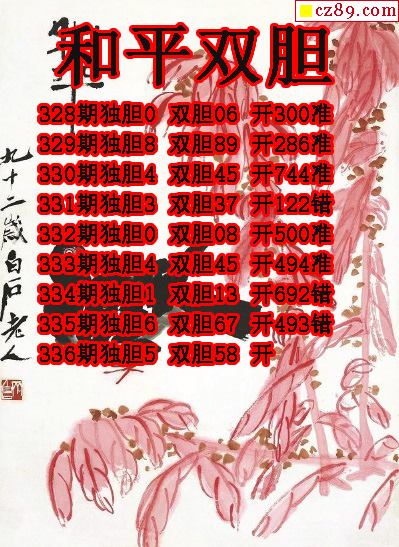 cz89.com
和平双胆
328期独胆0 双胆06 开300准
329期独胆8 双胆89 开286准
330期独胆4 双胆45 开744准
331期独胆3 双胆37 开122错
332期独胆0 双胆08 开500准
333期独胆4 双胆45 开494准
334期独胆1 双胆13 开692错
335期独胆6 双胆67 开493错
336期独胆5 双胆58 开
九十二岁白石老人